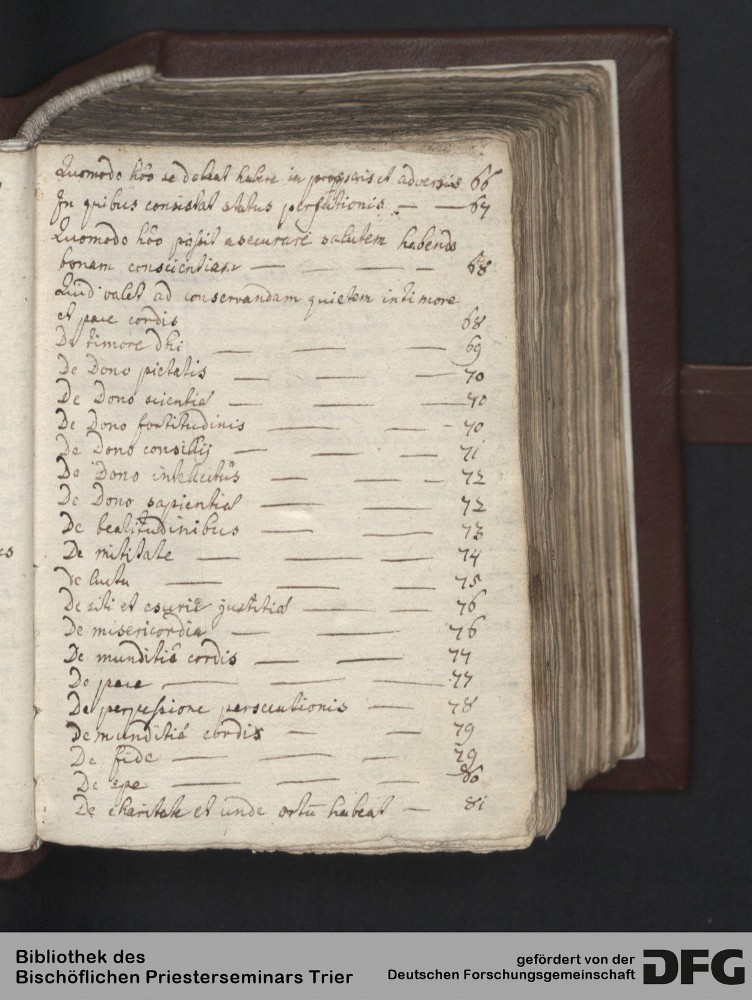 Quomodo hõo se debeat habere in prosperis et adversis 66
In quibus consistat status perfectionis 67
Quomodo hõo possit assecurare salutem habendo
bonam conscientiam 68
Quid valet ad conservandam quietem in timore
et pace cordis 68
De timore Dñi 69
De Dono pietatis 70
De Dono scientiæ 70
De Dono fortitudinis 70
De Dono consilij 71
De Dono intellectûs 72
De Dono sapientiæ 72
De beatitudinibus 73
De mititate 74
De luctu 75
De siti et esurie justitiæ 76
De misericordia 76
De munditiâ cordis 77
De pace 77
De perpessione persecutionis 78
De munditiâ cordis 79
De fide 79
De spe 80
De charitate et unde ortũ habeat 81
es
Bibliothek des
Bischöflichen Priesterseminars Trier
gefördert von der
Deutschen Forschungsgemeinschaft
DFG